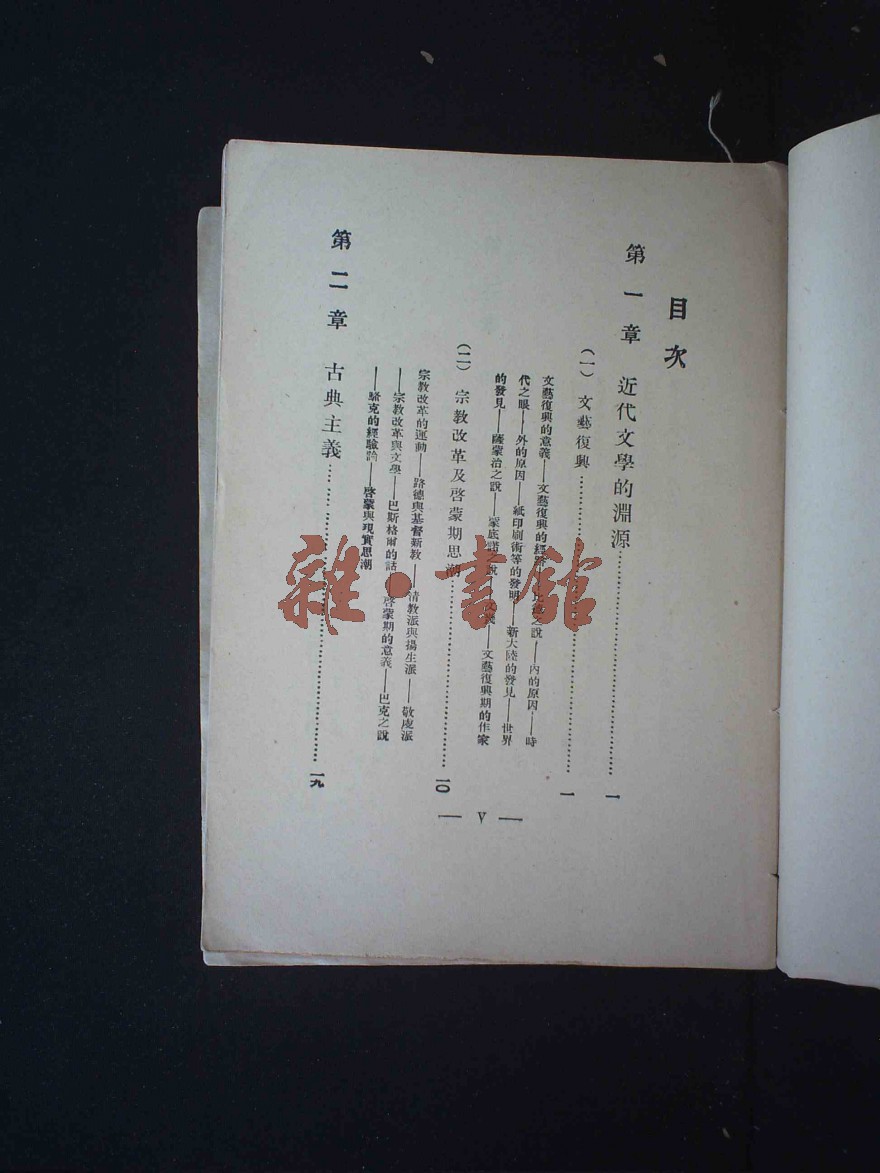 目次
第一章 近代文學的淵源……一
(一) 文藝復興……一
文藝復興的意義——文藝復興的經 之說——內的原因——時
代之眼——外的原因——紙印刷術等的發明——新大陸的發見——世界
的發見——薩蒙治之說——蒙底諾 說——文藝復興期的作家
(二) 宗教改革及啓蒙期思潮……一〇
宗教改革的運動——路德與基督新教——清教派與揚生派——敬虔派
——宗教改革與文學——巴斯格爾的話——啓蒙期的意義——巴克之說
——駱克的經驗論——啓蒙與現實思潮
第二章 古典主義……一九
— V —
雜·書館